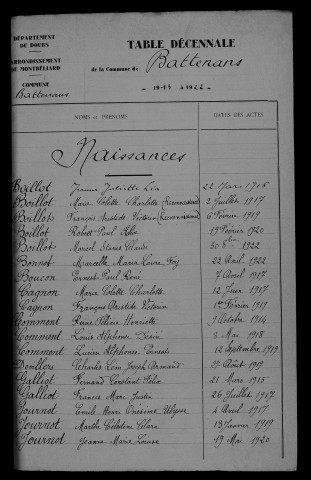 DÉPARTEMENT
DU DOUBS
ARRONDISSEMENT
DE MONTBÉLIARD
COMMUNE
Battenans
TABLE DÉCENNALE
de la Commune de Battenans
— 1913 à 1922 —
NOMS ET PRÉNOMS DATES DES ACTES
Naissances
Baillot Juliette 22 Mars
Boillot Marie Colette Charlotte (Reconnaissance) 2 Juillet 1917
Boillot François Aristide Victorin (Reconnaissance) 6 Février 1919
Boillot Robert Paul 19 Février 1920
Boillot Marcel Claude 30 1922
Bonnet Marcelle Maria Louise 22 Avril 1922
Boucon Ernest Paul René 7 Avril 1917
Cagnon Marie Colette Charlotte 12 Juin 1917
Cagnon François Aristide Victorin 1er Février 1919
Comment Reine Félicie Henriette 9 Octobre 1914
Comment Louis Alphonse Désiré 3 Mai 1918
Comment Lucien Alphonse Ernest 12 Septembre 1919
Charles Léon Joseph Armand 27 Août 1919
Galliot Fernand Constant Félix 21 Mars 1915
Galliot Francis Marc Justin 26 Juillet 1917
Journot Emile Henri Onésime Ulysse 4 Avril 1917
Journot Marthe Célestine Clara 13 Janvier 1919
Journot Jeanne Marie Louise 19 Mai 1920